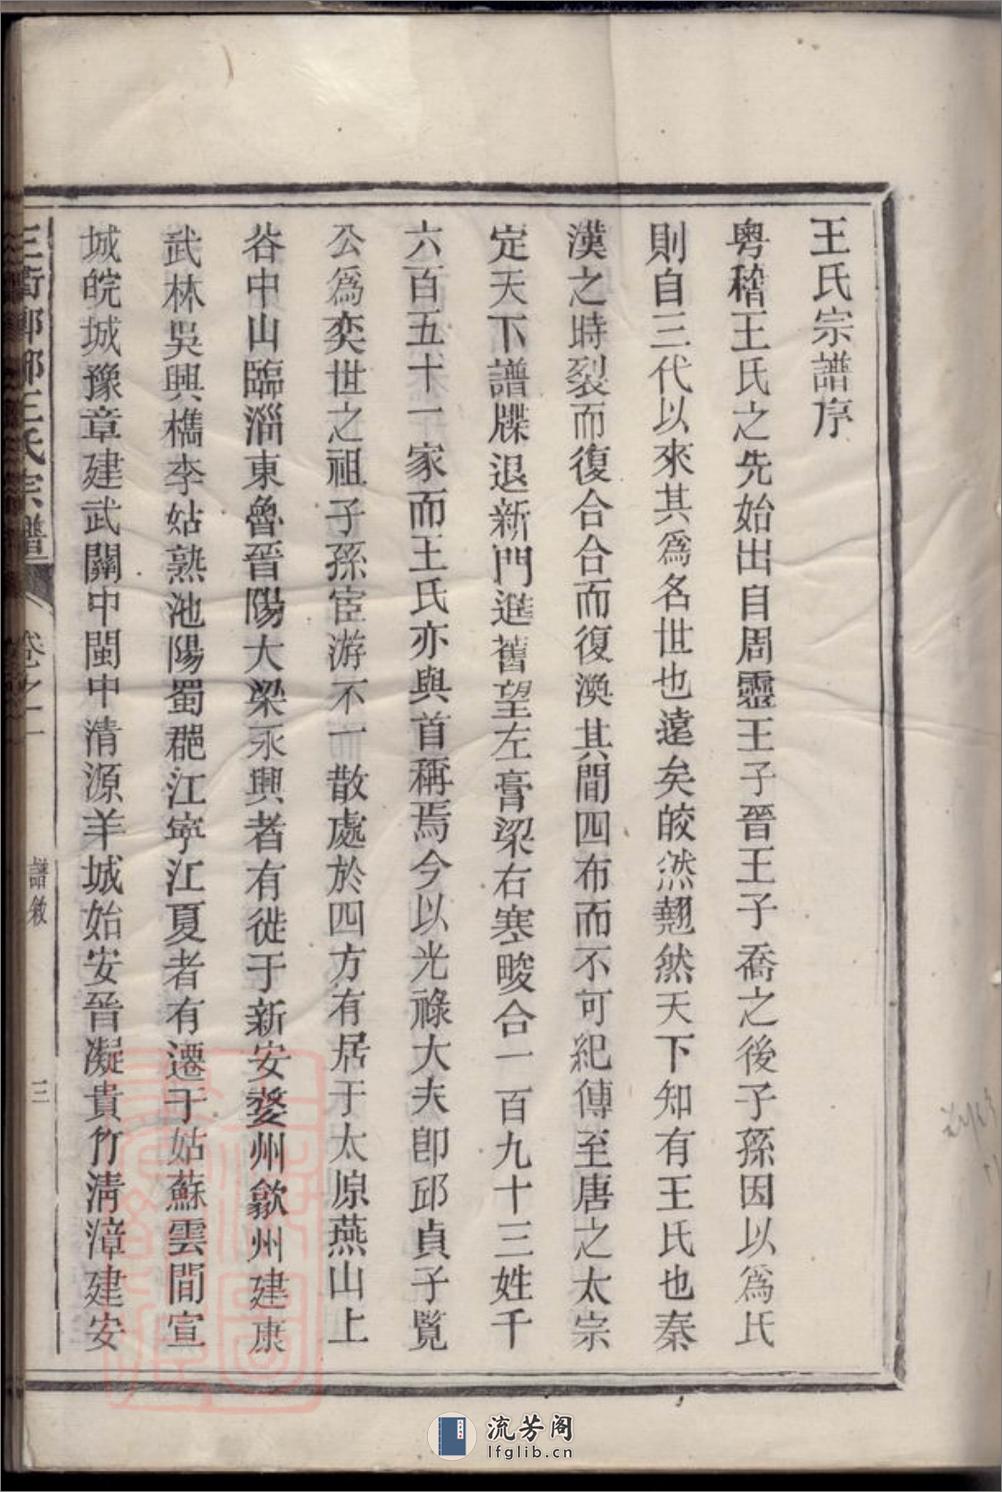 王氏宗譜序
粵稽王氏之先始出自周靈王子晉王子喬之後子孫因以爲氏
則自三代以來其爲名世也遠矣皎然翹然天下知有王氏也秦
漢之時裂而復合合而復渙其間四布而不可紀傳至唐之太宗
定天下譜牒退新門進舊望左膏梁右寒畯合一百九十三姓千
六百五十一家而王氏亦與首稱焉今以光祿大夫卽邱貞子覽
公爲奕世之祖子孫宦游不一散處於四方有居于太原燕山上
谷中山臨淄東魯晉陽大梁永興者有徙于新安婺州歙州建康
武林吳興檇李姑熟池陽蜀郡江寧江夏者有遷于姑蘇雲間宣
城皖城豫章建武關中閩中清源羊城始安晉凝貴竹淸漳建安
王氏宗譜
卷之一
譜敘
三
流芳阁
lfglib.cn